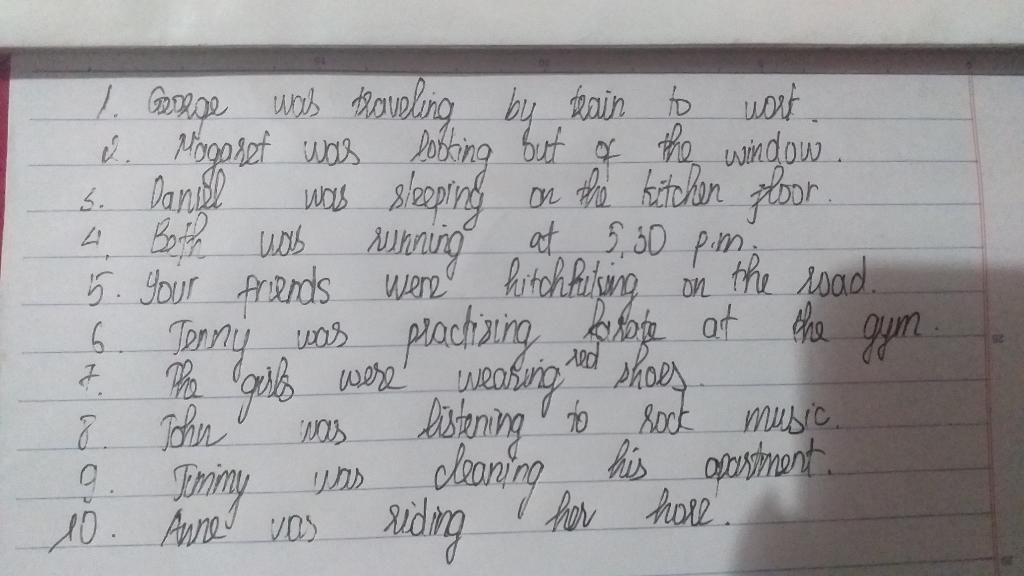 1. George was traveling by train to work.
2. Magaret was looking out of the window.
3. Daniel was sleeping on the kitchen floor.
4. Both was running at 5,30 p.m.
5. Your friends were hitchhiking on the road.
6. Jenny was practizing karate at the gym.
7. The girls were wearing red shoes.
8. John was listening to rock music.
9. Jimmy was cleaning his apartment.
10. Anne was riding her hore.